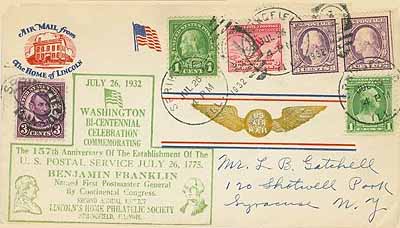 AIR MAIL from
The HOME of LINCOLN
1 CENT 1
3 CENTS 3
JULY 26, 1932
WASHINGTON
BI-CENTENNIAL
CELEBRATION
COMMEMORATING
The 157th Anniversary Of The Establishment Of The
U. S. POSTAL SERVICE JULY 26, 1775.
BENJAMIN FRANKLIN
Named First Postmaster General
By Continental Congress.
SECOND ANNUAL EXHIBIT
LINCOLN'S HOME PHILATELIC SOCIETY
SPRINGFIELD, ILLINOIS.
JUL 26
1932
US
AIR
MAIL
Mr. L B. Gatchell
120 Shotwell Park
Syracuse N. Y.